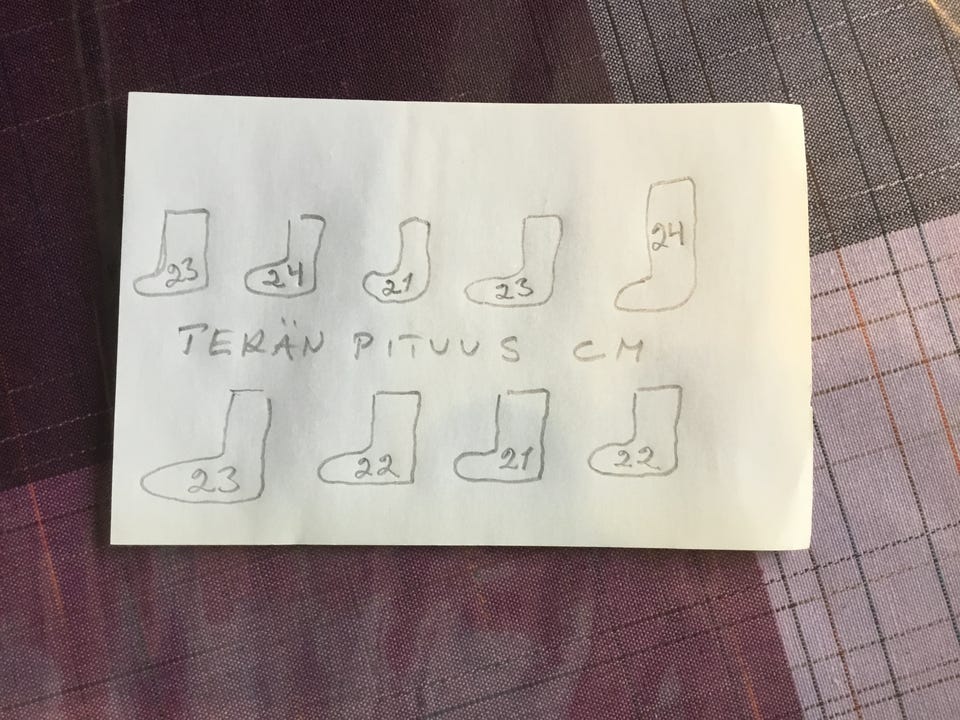 23 24 21 23 24
TERÄN PITUUS CM
23 22 21 22